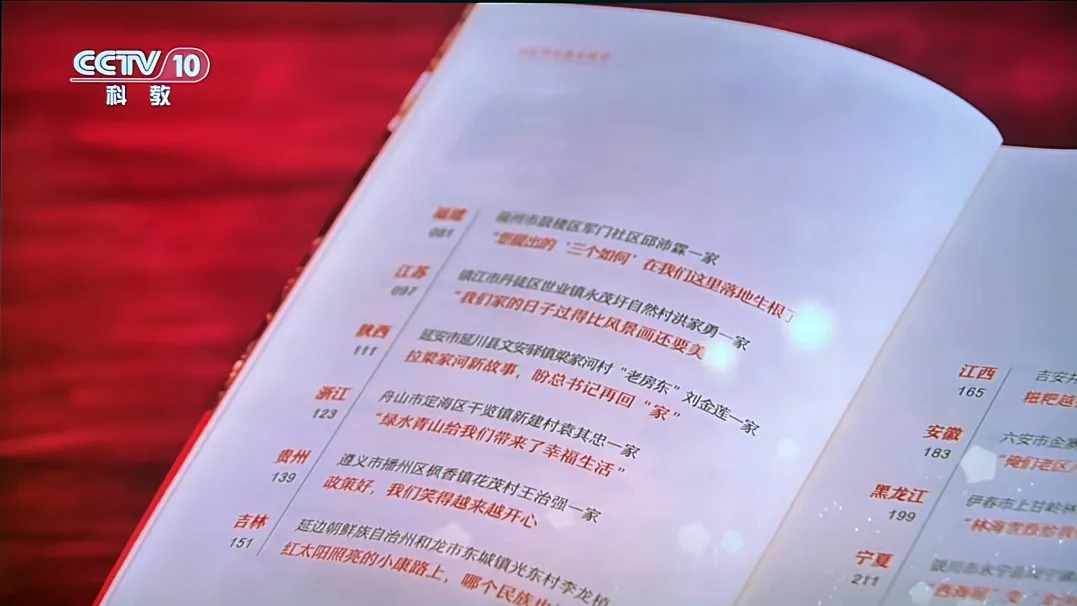 CCTV 10
科教
福建
081
福州市鼓楼区军门社区邱沛霖一家
“您提出的‘三个如何’在我们这里落地生根”
江苏
097
镇江市丹徒区世业镇永茂圩自然村洪家勇一家
“我们家的日子过得比风景画还要美
陕西
111
延安市延川县文安驿镇梁家河村“老房东”刘金莲一家
拉梁家河新故事，盼总书记再回“家”
浙江
123
舟山市定海区干览镇新建村袁其忠一家
“绿水青山给我们带来了幸福生活”
贵州
139
遵义市播州区枫香镇花茂村王治强一家
政策好，我们笑得越来越开心
吉林
151
延边朝鲜族自治州和龙市东城镇光东村李龙植
红太阳照亮的小康路上，哪个民族也
江西
165
吉安井
糍粑越
安徽
183
六安市金寨
“俺们老区
黑龙江
199
伊春市上甘岭林
“林海雪原给我
宁夏
211
银川市永宁县闽宁镇